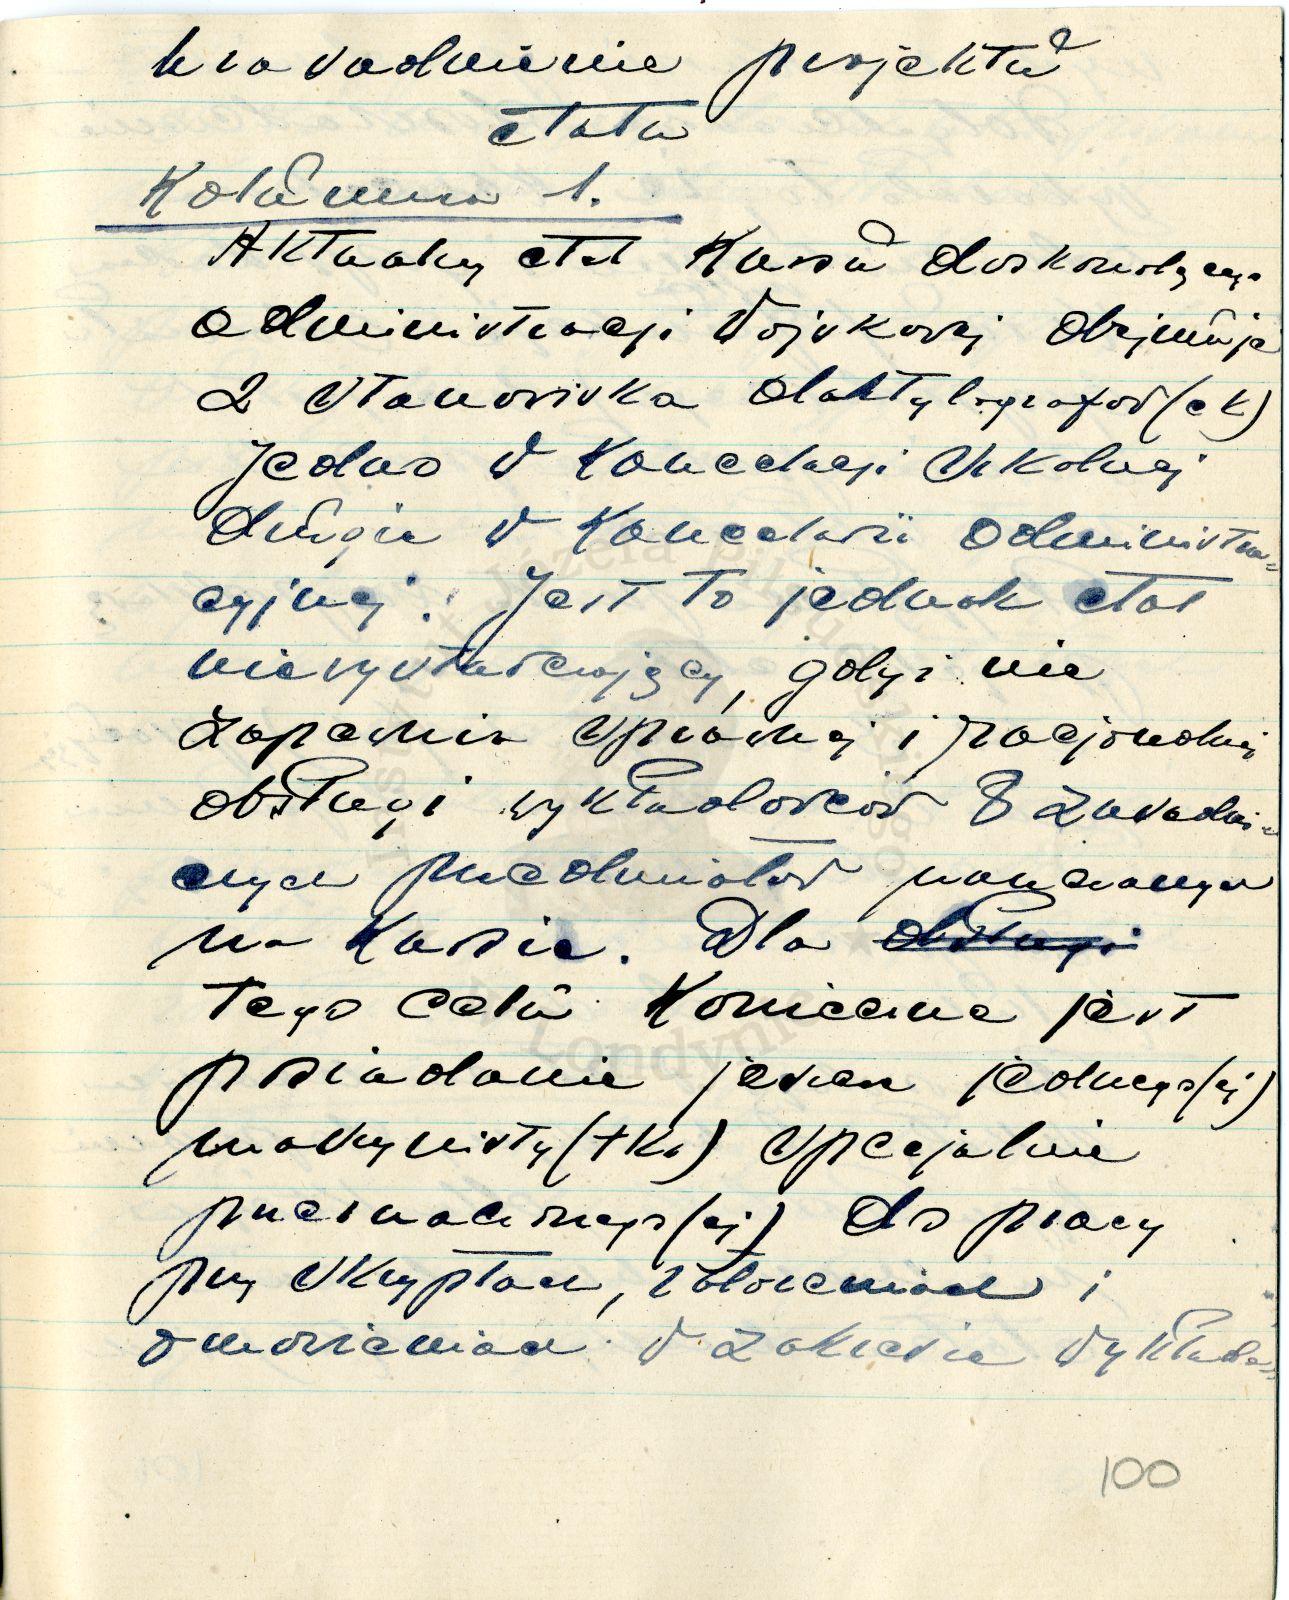 Uzasadnienie projektu
etatu
Kolumna 1.
Aktualny etat Kursu doskonalącego
administracji Wojskowej obejmuje
2 stanowiska daktylografów(ek)
jedno w Kancelarji Szkolnej
drugie w Kancelarii administra-
cyjnej. Jest to jednak etat
niewystarczający, gdyż nie
zapewnia sprawnej i racjonalnej
obsługi wykładowców 8 zasadni-
czych przedmiotów nauczanych
na Kursie. Dla obsługi
tego celu konieczne jest
posiadanie jeszcze jednego(ej)
maszynisty(tki) specjalnie
przeznaczonego(ej) do pracy
przy skryptach, założeniach i
omówieniach w zakresie wykłada-
100
Instytut Józefa Piłsudskiego
w Londynie